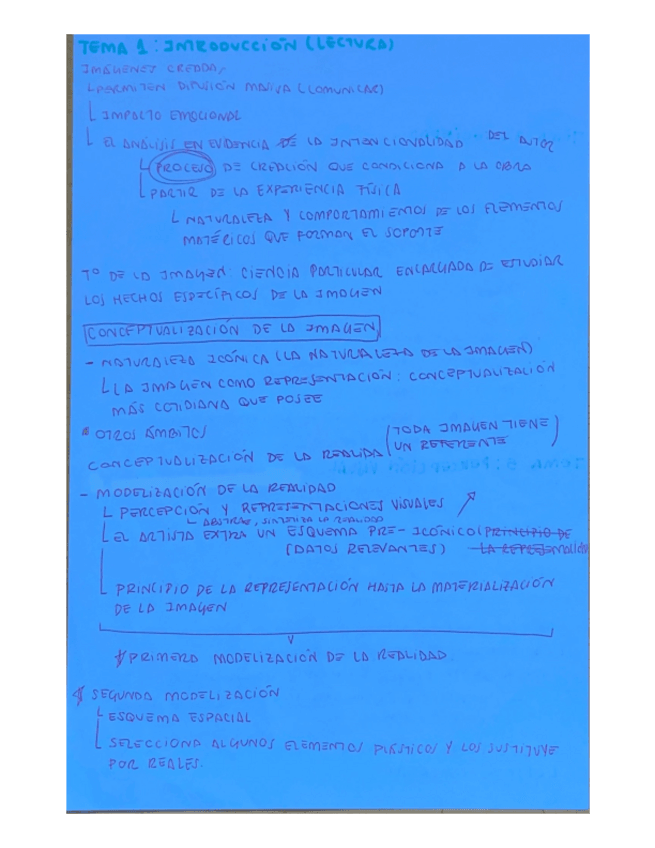 TEMA 1: INTRODUCCIÓN (LECTURA)
IMÁGENEZ CREDDA,
PERMITEN DIFUSIÓN MASIVA (COMUNICAR)
IMPACTO EMOCIONAL
EL ANÁLISIS EN EVIDENCIA DE LA INTENCIONALIDAD DEL AUTOR
PROCESO DE CREACIÓN QUE CONDICIONA A LA OBRA
PARTIR DE LA EXPERIENCIA FÍSICA
NATURALEZA Y COMPORTAMIENTOS DE LOS ELEMENTOS
MATÉRICOS QUE FORMAN EL SOPORTE
Tº DE LA IMAGEN: CIENCIA PARTICULAR ENCARGADA DE ESTUDIAR
LOS HECHOS ESPECÍFICOS DE LA IMAGEN
CONCEPTUALIZACIÓN DE LA IMAGEN
- NATURALEZA ICÓNICA (LA NATURALEZA DE LA IMAGEN)
LA IMAGEN COMO REPRESENTACIÓN: CONCEPTUALIZACIÓN
MÁS COTIDIANA QUE POSEE
* OTROS ÁMBITOS
CONCEPTUALIZACIÓN DE LA REALIDA (TODA IMAGEN TIENE
UN REFERENTE)
- MODELIZACIÓN DE LA REALIDAD
PERCEPCIÓN Y REPRESENTACIONES VISUALES
ABSTRAE, SINTETIZA LA REALIDAD
EL ARTISTA EXTRA UN ESQUEMA PRE-ICÓNICO (PRINCIPIO DE
(DATOS RELEVANTES) LA REPRESENTACIÓN
PRINCIPIO DE LA REPRESENTACIÓN HASTA LA MATERIALIZACIÓN
DE LA IMAGEN
PRIMERA MODELIZACIÓN DE LA REALIDAD
SEGUNDA MODELIZACIÓN
ESQUEMA ESPACIAL
SELECCIONA ALGUNOS ELEMENTOS PLÁSTICOS Y LOS SUSTITUYE
POR REALES.